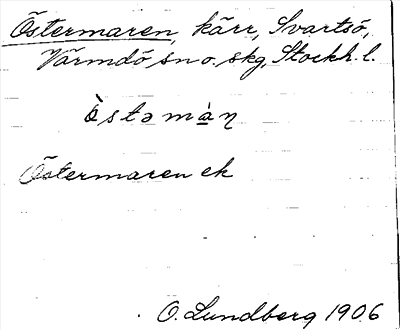 Östermaren, kärr, Svartsö,
Värmdö sn o. skg, Stockh. l.
Òstəmàṇ
Östermaren ek
O. Lundberg 1906